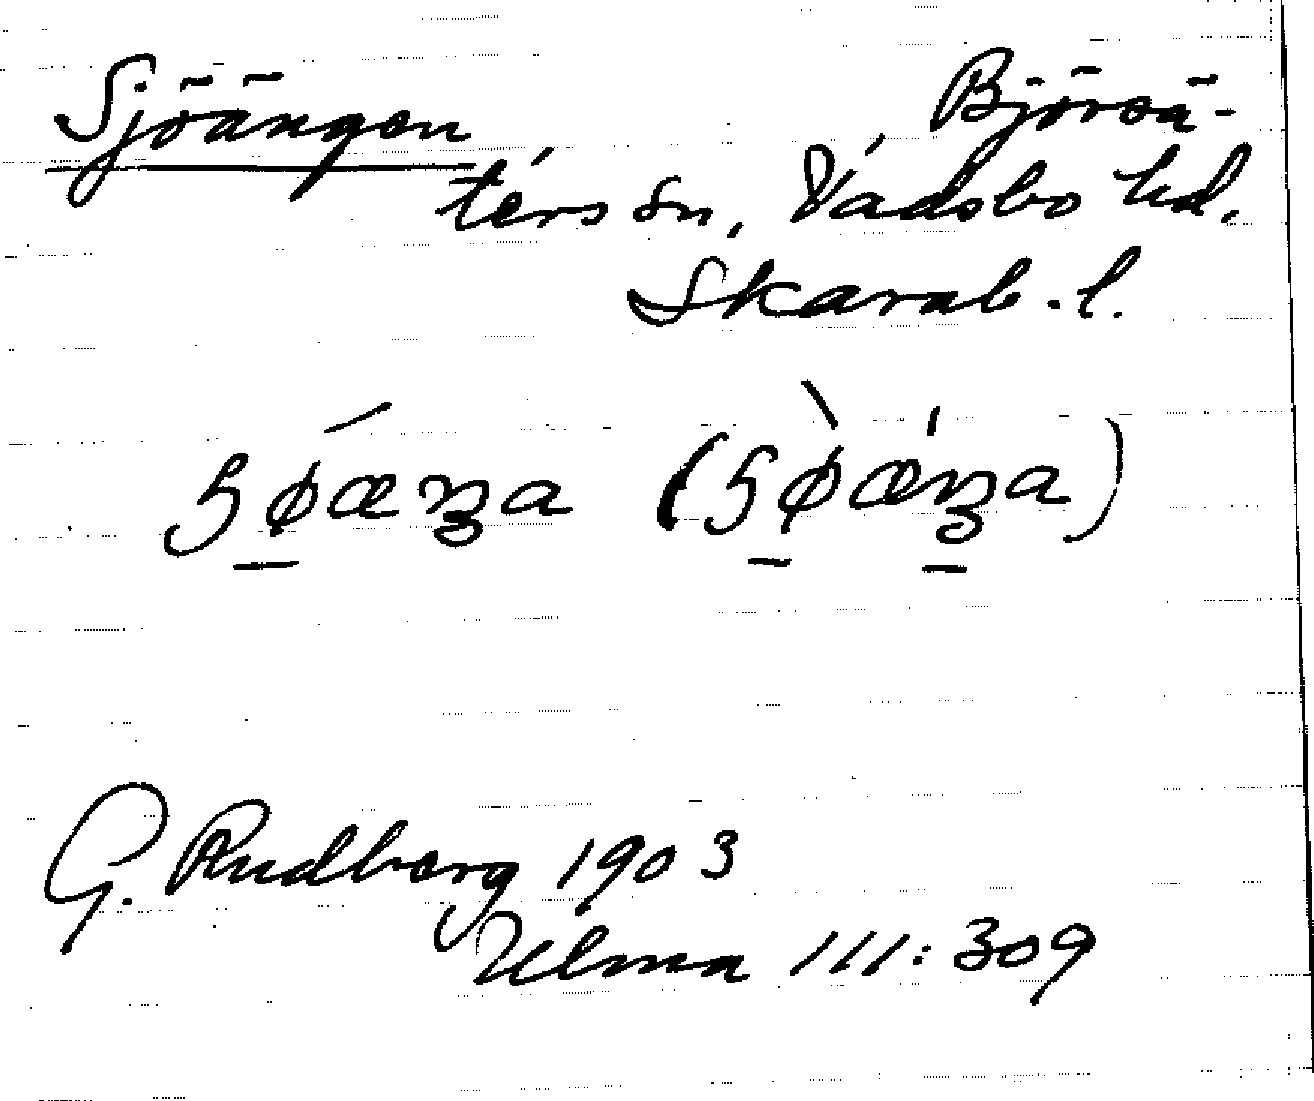 Sjöängen Björsä-
ters sn, Vadsbo hd.
Skarab. l.
G. Rudberg 1903
Ulma 111:309